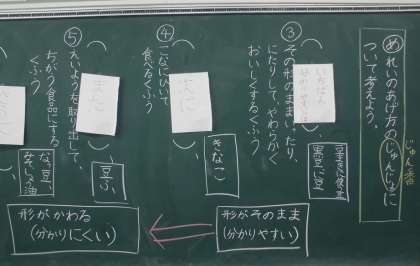 め れいのあげ方のじゅんじょに
ついて考えよう。
じゅん番
③
その形のままいったり、
にたりして、やわらかく
おいしくするくふう
黒豆 に豆
④
こなにひいて
食べるくふう
次に
きなこ
⑤
えいようを取り出して、
ちがう食品にする
くふう
また
豆ふ
なっ豆、
形がそのまま
(分かりやすい)
形がかわる
(分かりにくい)